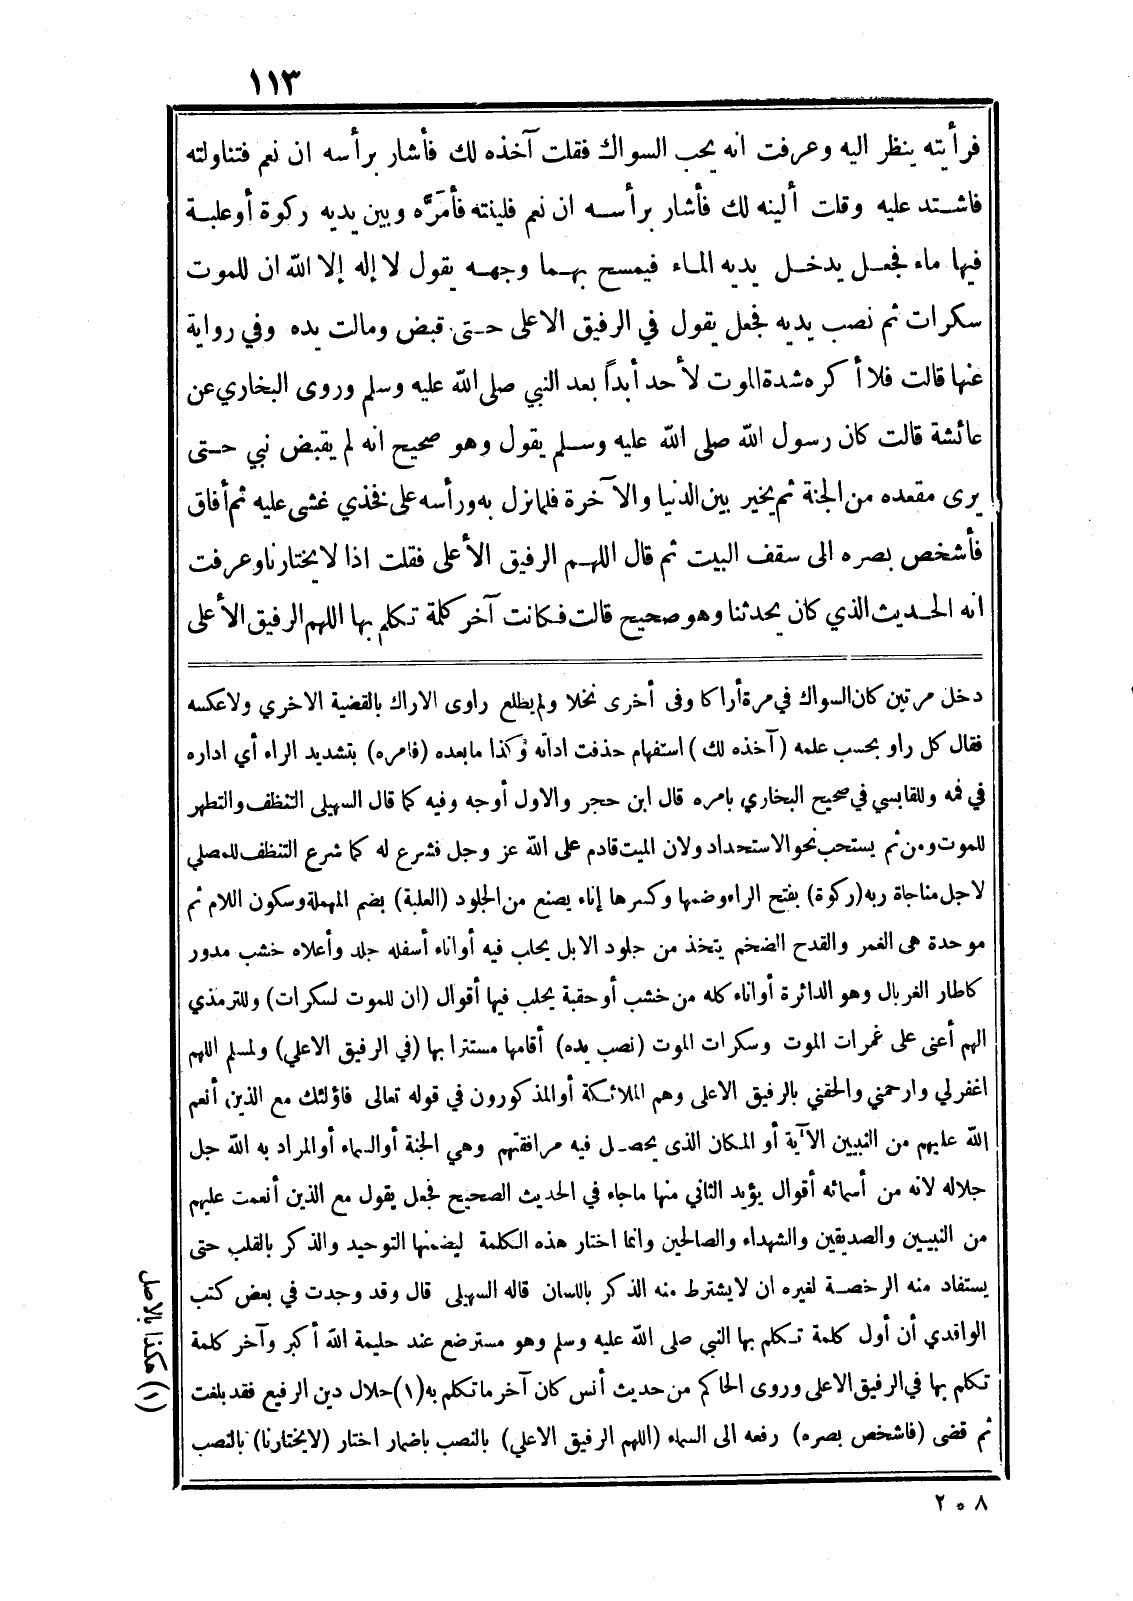 ١١٣
فرأيته ينظر اليه وعرفت انه يحب السواك فقلت آخذه لك فأشار برأسه ان نعم فتناولته
فاشتد عليه وقلت ألينه لك فأشار برأسه ان نعم فلينته فأمَرَّه وبين يديه ركوة أوعلبة
فيها ماء فجعل يدخل يديه الماء فيمسح بهما وجهه يقول لا إله إلا الله ان للموت
سكرات ثم نصب يديه فجعل يقول في الرفيق الاعلى حتى قبض ومالت يده وفي رواية
عنها قالت فلا أكره شدة الموت لأحد أبداً بعد النبي صلى الله عليه وسلم وروى البخاري عن
عائشة قالت كان رسول الله صلى الله عليه وسلم يقول وهو صحيح انه لم يقبض نبي حتى
يرى مقعده من الجنة ثم يخير بين الدنيا والآخرة فلما نزل به ورأسه على فخذي غشى عليه ثم أفاق
فأشخص بصره الى سقف البيت ثم قال اللهم الرفيق الأعلى فقلت اذا لا يختارنا وعرفت
انه الحديث الذي كان يحدثنا وهو صحيح قالت فكانت آخر كلمة تكلم بها اللهم الرفيق الأعلى
دخل مرتين كان السواك في مرة أراكا وفى أخرى نخلا ولم يطلع راوى الاراك بالقضية الاخري ولا عكسه
فقال كل راو بحسب علمه (آخذه لك) استفهام حذفت اداته وكذا ما بعده (فامره) بتشديد الراء أي اداره
في فمه وللقابسي في صحيح البخاري بامره قال ابن حجر والاول أوجه وفيه كما قال السهيلى التنظف والتطهر
للموت ومن ثم يستحب نحو الاستحداد ولان الميت قادم على الله عز وجل فشرع له كما شرع التنظف للمصلي
لاجل مناجاة ربه (ركوة) بفتح الراء وضمها وكسرها إناء يصنع من الجلود (العلبة) بضم المهملة وسكون اللام ثم
موحدة هى الغمر والقدح الضخم يتخذ من جلود الابل يحلب فيه أواناء أسفله جلد وأعلاه خشب مدور
كاطار الغربال وهو الدائرة أواناء كله من خشب أو حقبة يحلب فيها أقوال (ان للموت لسكرات) وللترمذي
الهم أعنى على غمرات الموت وسكرات الموت (نصب يده) أقامها مستترا بها (في الرفيق الاعلي) ولمسلم اللهم
اغفر لي وارحمني والحقني بالرفيق الاعلى وهم الملائكة أو المذكورون في قوله تعالى فاؤلئك مع الذين أنعم
الله عليهم من النبيين الآية أو المكان الذى يحصل فيه مرافقتهم وهي الجنة أو السماء أو المراد به الله جل
جلاله لانه من أسمائه أقوال يؤيد الثاني منها ما جاء في الحديث الصحيح فجعل يقول مع الذين أنعمت عليهم
من النبيين والصديقين والشهداء والصالحين وانما اختار هذه الكلمة ليضمنها التوحيد والذكر بالقلب حتى
يستفاد منه الرخصة لغيره ان لا يشترط منه الذكر باللسان قاله السهيلى قال وقد وجدت في بعض كتب
الواقدي أن أول كلمة تكلم بها النبي صلى الله عليه وسلم وهو مسترضع عند حليمة الله أكبر وآخر كلمة
تكلم بها في الرفيق الاعلى وروى الحاكم من حديث أنس كان آخر ما تكلم به (١) حلال دين الرفيع فقد بلغت
ثم قضى (فاشخص بصره) رفعه الى السماء (اللهم الرفيق الاعلي) بالنصب باضمار اختار (لا يختارنا) بالنصب
(١) هكذا بالاصل
٨ * ٢